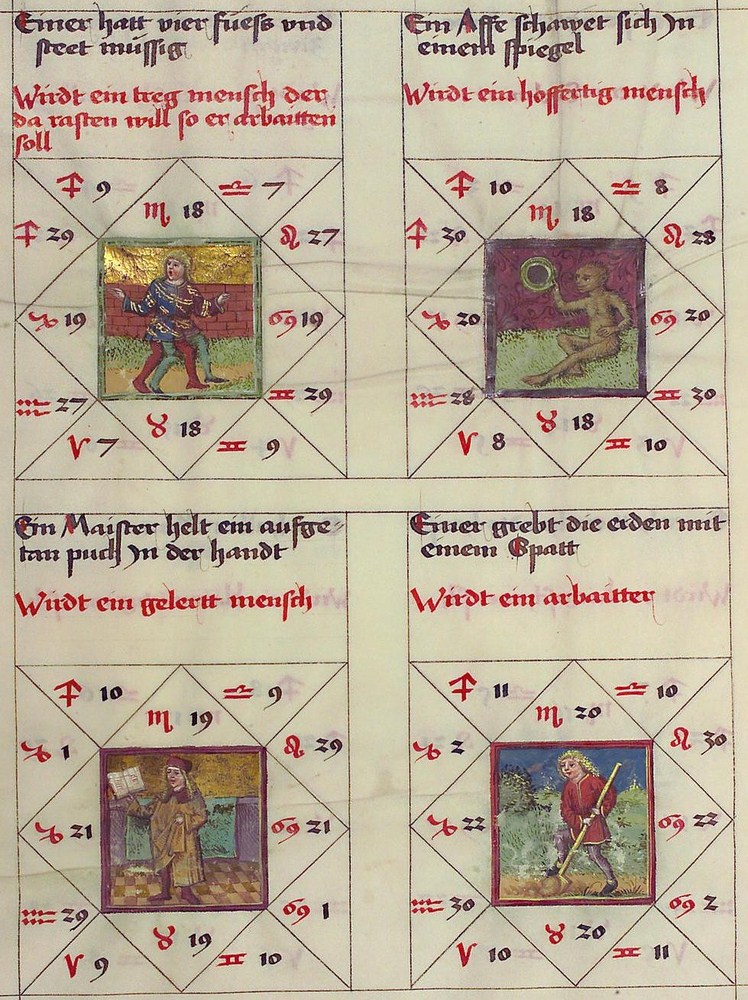 Einer hatt vier fuess vnd
steet müssig
Wirdt ein treg mensch der
da rasten will so er arbaitten
soll
♐ 9 ♎ 7
♏ 18
♐ 29 ♌ 27
♑ 19 ♋ 19
♒ 27 ♊ 29
♉ 18
♈ 7 ♊ 9
Ein Affe schawet sich Jn
einem spiegel
Wirdt ein hoffertig mensch
♐ 10 ♎ 8
♏ 18
♐ 30 ♌ 28
♑ 20 ♋ 20
♒ 28 ♊ 30
♉ 18
♈ 8 ♊ 10
Ein Maister helt ein aufge-
tan puch Jn der handt
Wirdt ein gelertt mensch
♐ 10 ♎ 9
♏ 19
♑ 1 ♌ 29
♑ 21 ♋ 21
♒ 29 ♋ 1
♉ 19
♈ 9 ♊ 10
Einer grebt die erden mit
einem Spatt
Wirdt ein arbaitter
♐ 11 ♎ 10
♏ 20
♑ 2 ♌ 30
♑ 22 ♋ 22
♒ 30 ♋ 2
♉ 20
♈ 10 ♊ 11